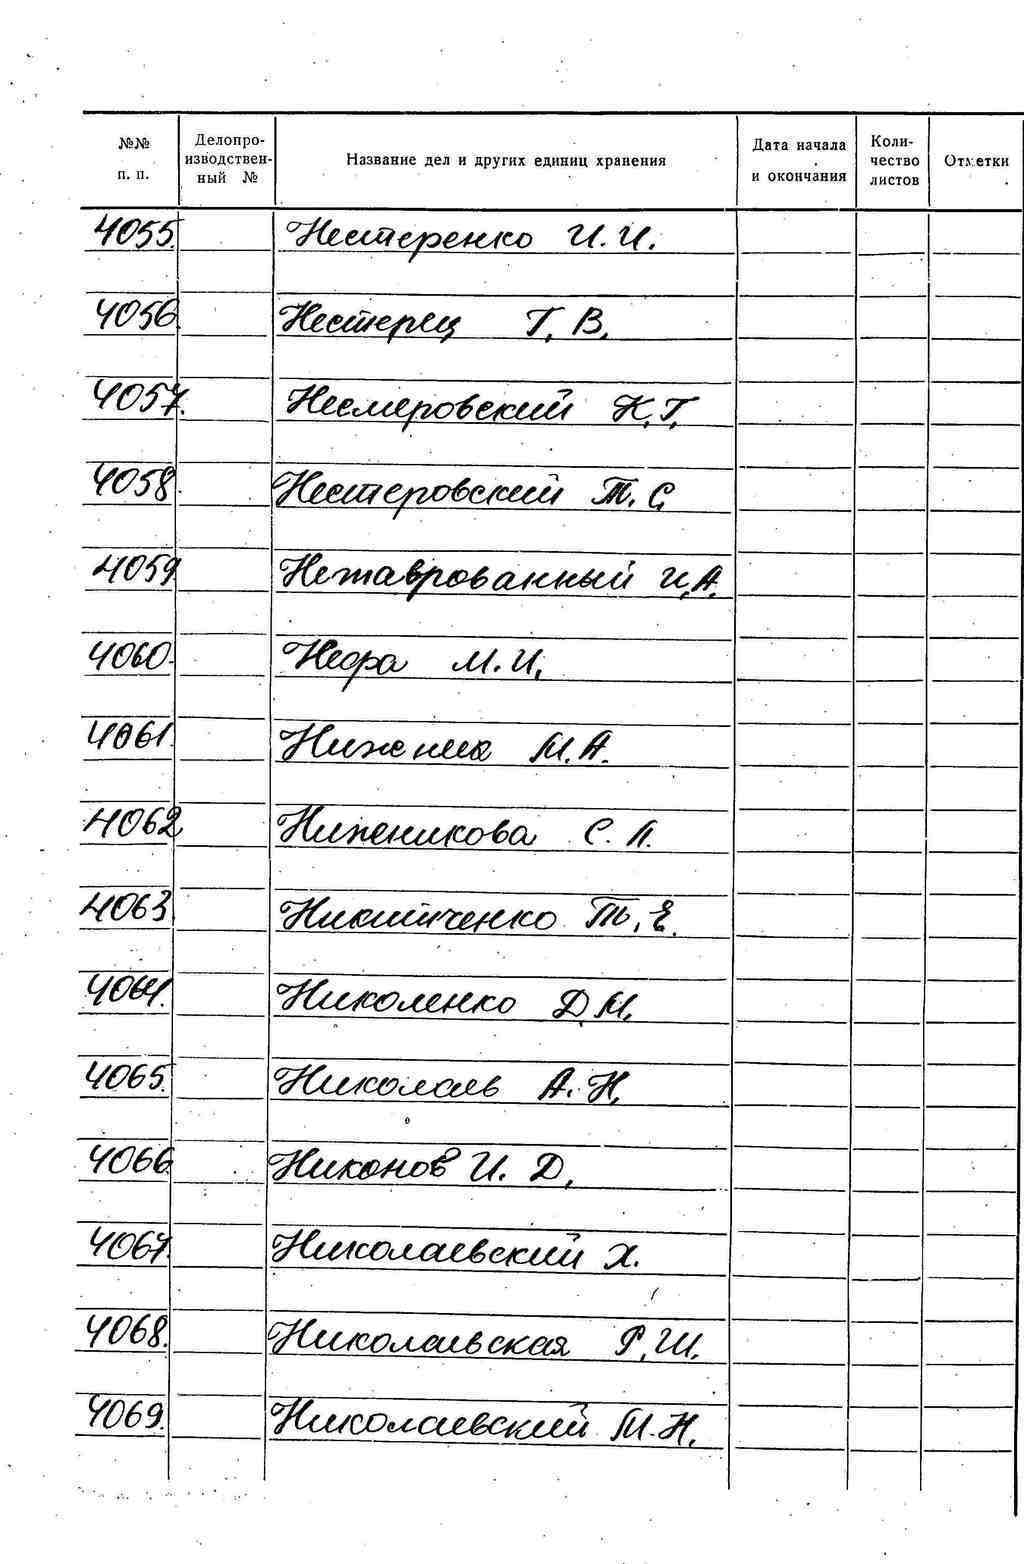 №№ п. п. Делопроизводственный № Название дел и других единиц хранения Дата начала и окончания Количество листов Отметки
4055. Нестеренко И. И.
4056 Нестерец Г. В.
4057. Несмеровский К. Г.
4058. Нестеровский Т. С.
4059. И. А.
4060. Неора М. И.
4061. Ниженик М. А.
4062 Ниженикова С. П.
4063 Никитченко Т. Е.
4064. Николенко Д. М.
4065. Николаев А. Н.
4066 Никонов И. Д.
4067. Николаевский Х.
4068. Николаевская Р. Ш.
4069. Николаевский М. Н.